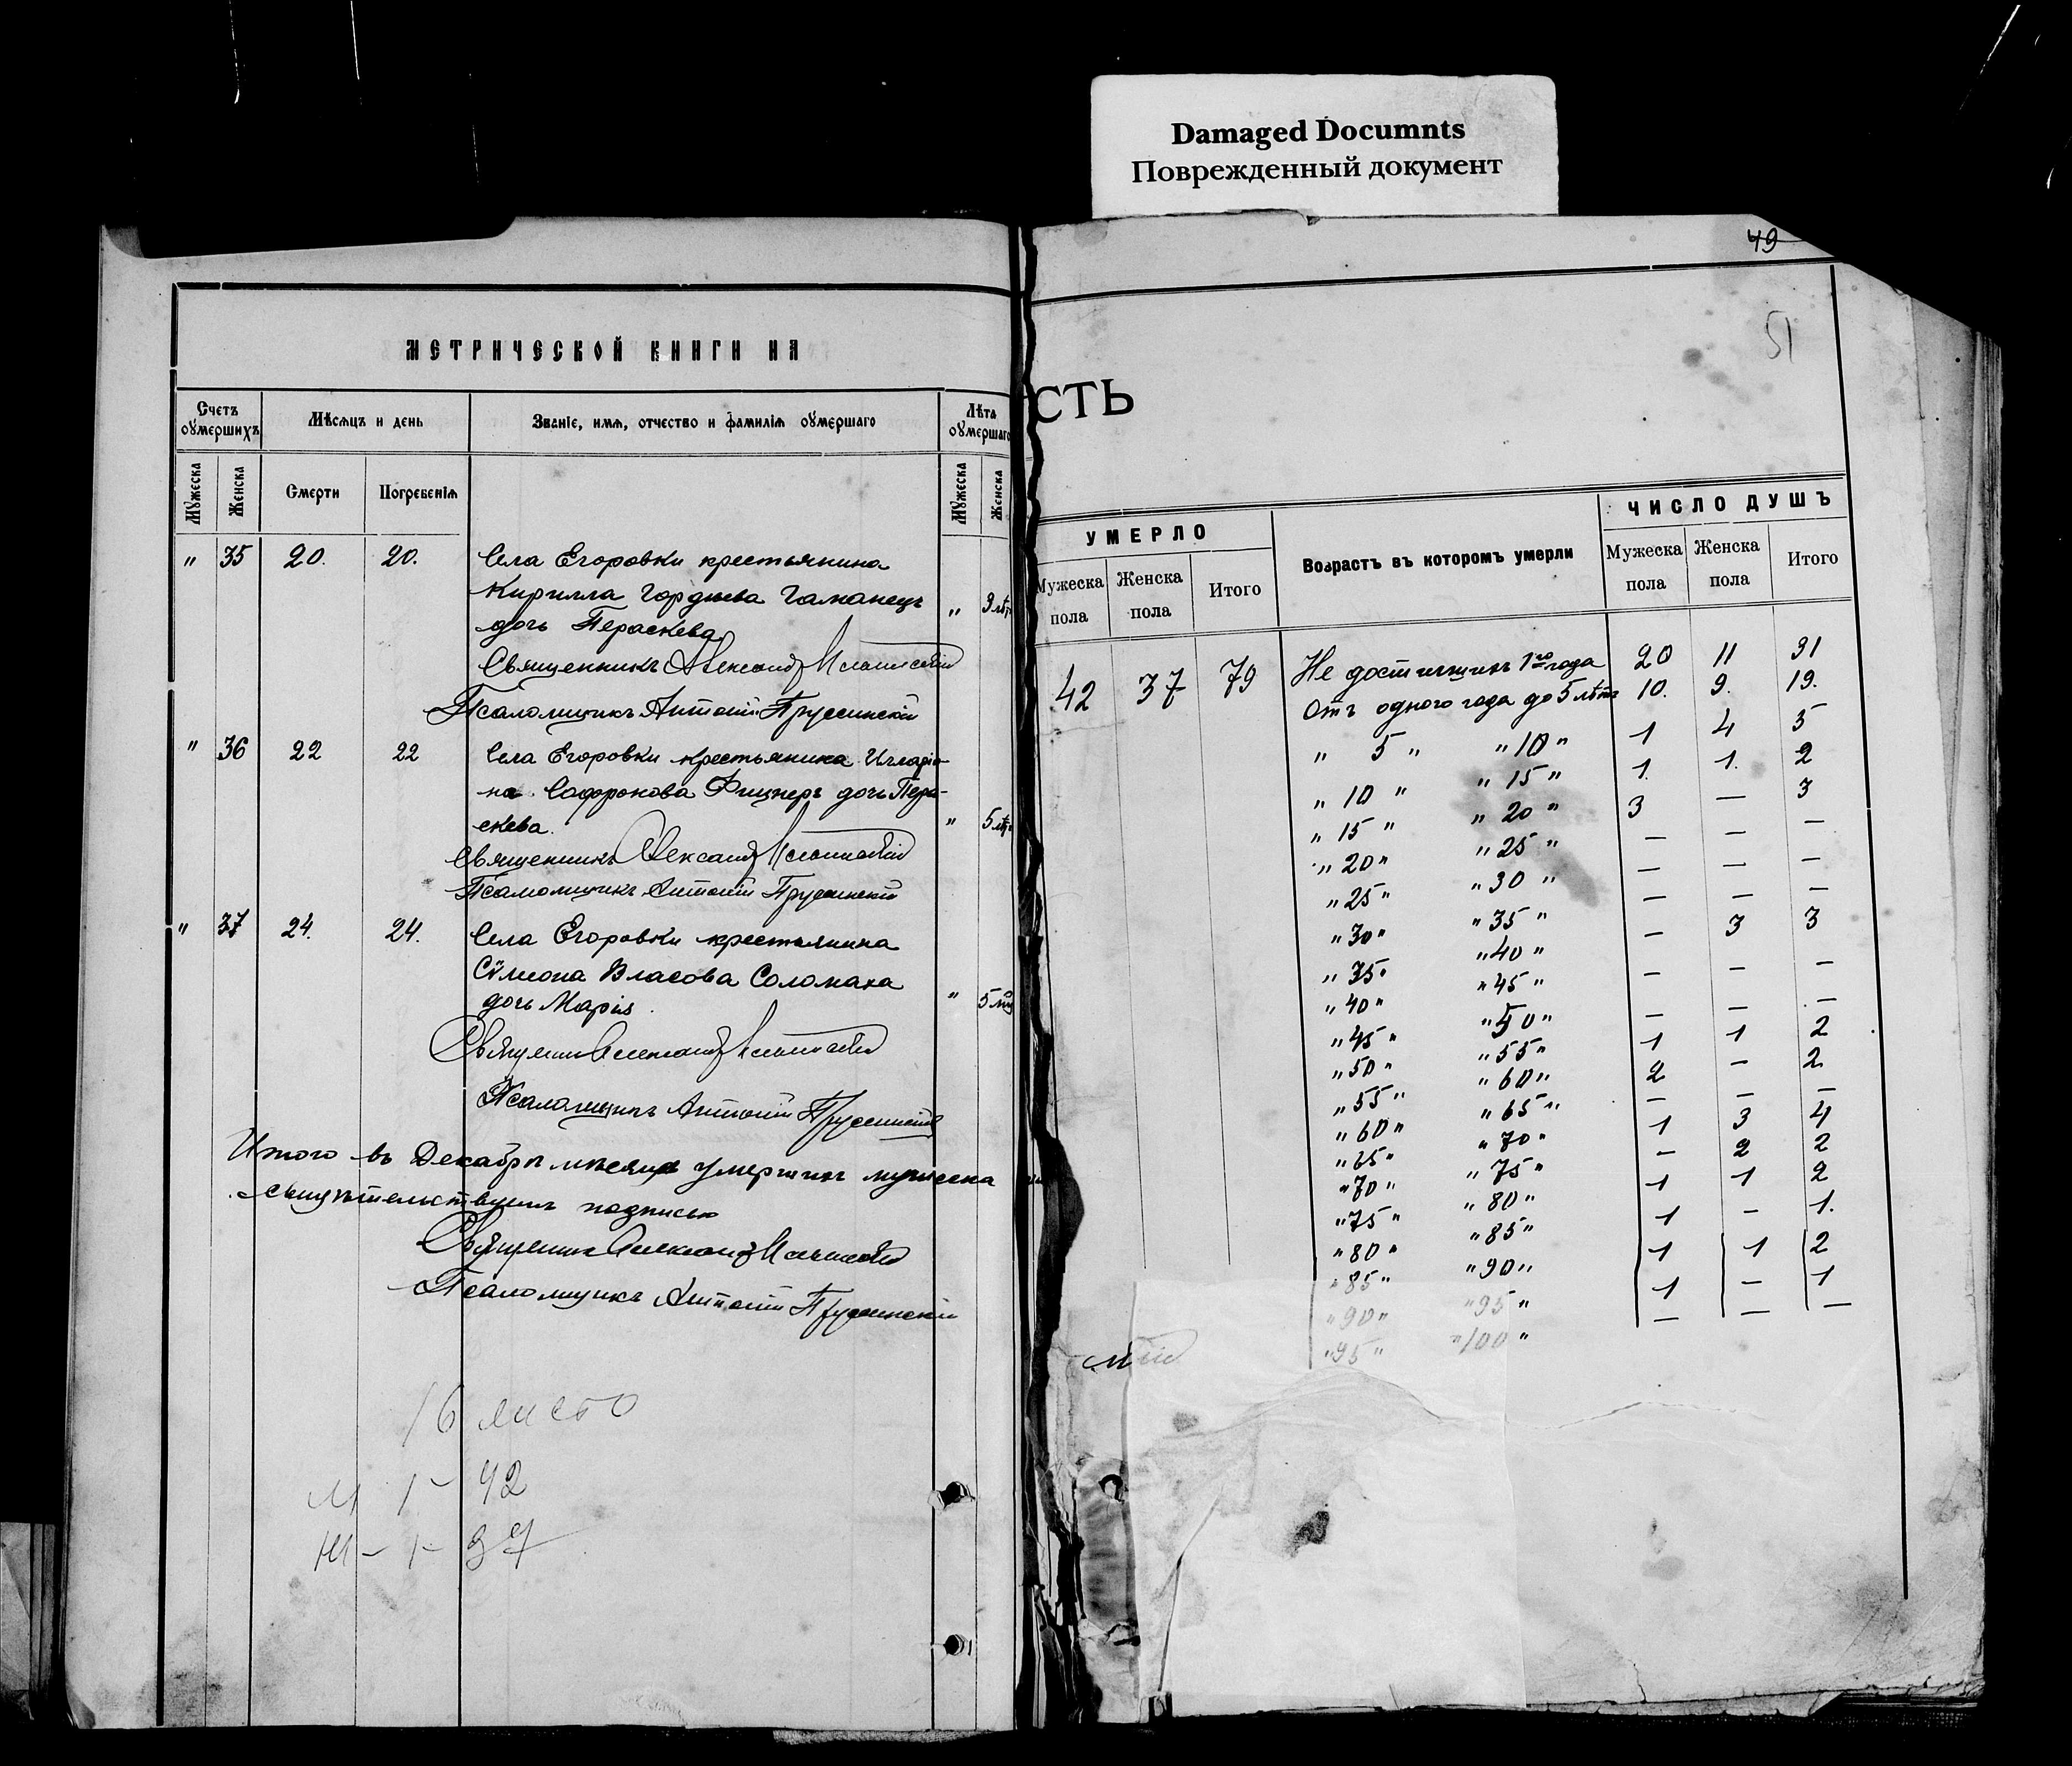 Damaged Documnts
Поврежденный документ
МЕТРИЧЕСКОЙ КНИГИ НА
Счетъ оумершихъ
Мѣсяцъ и день
Званіе, имя, отчество и фамилія оумершаго
Лѣта оумершаго
Мужеска
Женска
Смерти
Погребенія
Мужеска
Женска
" 35 20. 20. Села Егоровки крестьянина
Кирилла Гордѣева Гаманецъ
дочь Пераскева " 9 лѣт
Священникъ Александр
Псаломщикъ Антоній Прусинскій
" 36 22 22 Села Егоровки крестьянина Илларіо-
на Сафронова Фицнеръ дочь Пера-
скева. " 5 лѣт
Священникъ Александр
Псаломщикъ Антоній Прусинскій
" 37 24. 24. Села Егоровки крестьянина
Сѵмеона Власова Соломаха
дочь Марія " 5
Священник Александр
Псаломщикъ Антоній Прусинскій
Итого въ Декабрѣ мѣсяцѣ умершихъ мужеска
свидѣтельствуемъ подписью
Священник Александр
Псаломщикъ Антоній Прусинскій
16 листо
М 1 - 42
Ж - 1 - 37
49
51
СТЬ
УМЕРЛО
Возрастъ въ которомъ умерли
ЧИСЛО ДУШЪ
Мужеска пола
Женска пола
Итого
Мужеска пола
Женска пола
Итого
42 37 79 Не достигшихъ 1го года 20 11 31
Отъ одного года до 5 лѣтъ 10. 9. 19.
" 5 " " 10 " 1 4 5
" 10 " " 15 " 1. 1. 2
" 15 " " 20 " 3 — 3
" 20 " " 25 " — — —
" 25 " " 30 " — — —
" 30 " " 35 " — — —
" 35 " " 40 " — 3 3
" 40 " " 45 " — — —
" 45 " " 50 " — — —
" 50 " " 55 " 1 1 2
" 55 " " 60 " 2 — 2
" 60 " " 65 " — — —
" 65 " " 70 " 1 3 4
" 70 " " 75 " — 2 2
" 75 " " 80 " 1 1 2
" 80 " " 85 " 1 — 1.
" 85 " " 90 " 1 1 2
" 90 " " 95 " 1 — 1
" 95 " " 100 " — — —